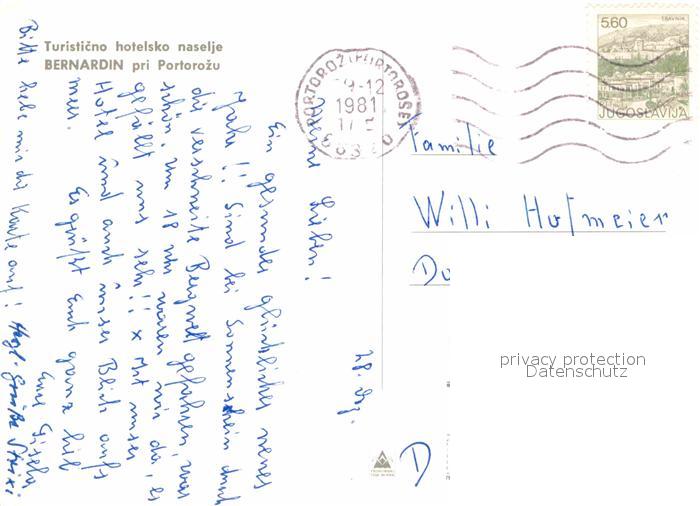 Turistično hotelsko naselje
BERNARDIN pri Portorožu
PORTOROŽ (PORTOROSE)
29-12
1981
17-
66320
5.60
TRAVNIK
JUGOSLAVIJA
Familie
Willi Hofmeier
D
privacy protection
Datenschutz
28. Dez.
Meine Lieben!
Ein gesundes glückliches neues
Jahr!! Sind bei Sonnenschein durch
die verschneite Bergwelt gefahren, war
schön, um 18 Uhr waren wir da, es
gefällt uns sehr!! x Mit unser
Hotel und auch unser Blick aufs
Meer. Es grüßt Euch ganz
Eure Gisela
Bitte hebe mir die Karte auf! Herzl. Grüße